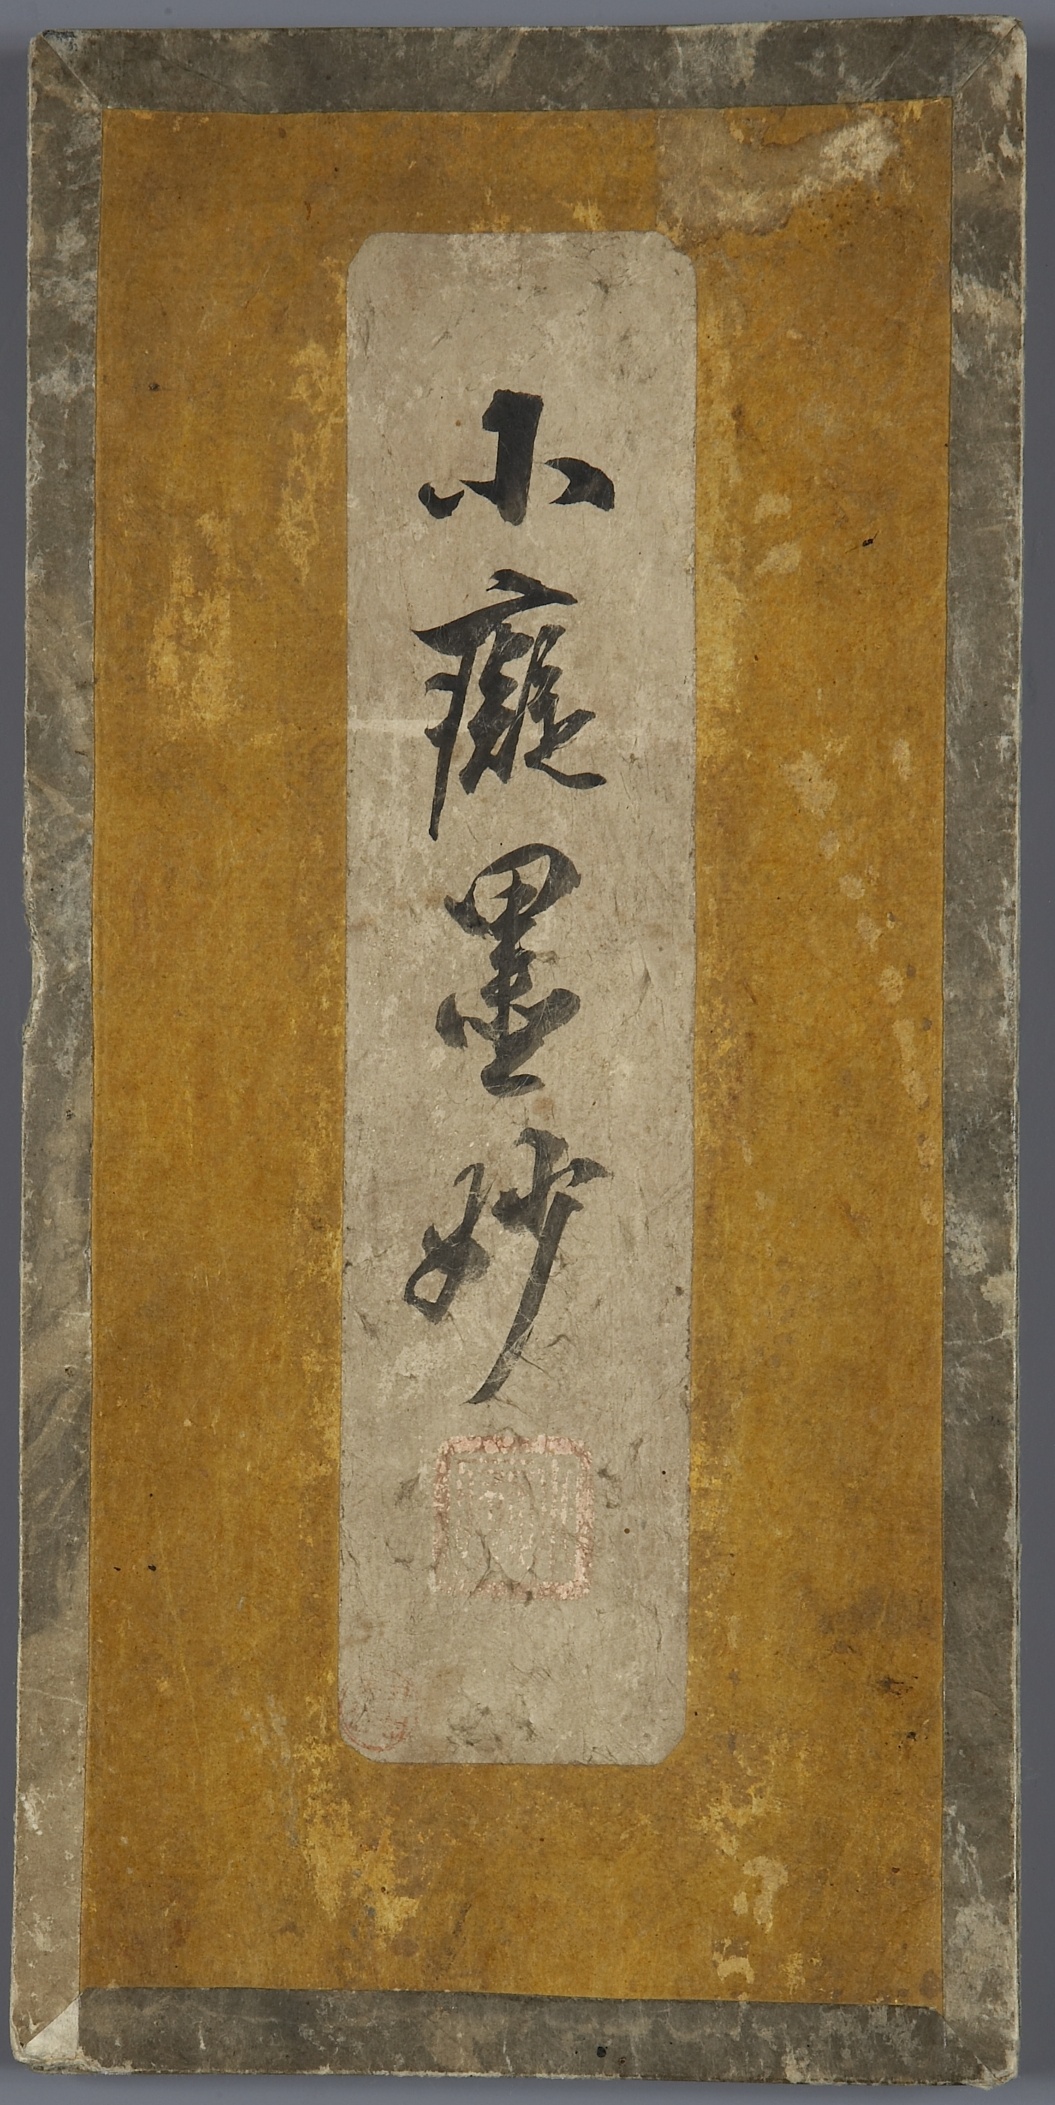 小癡墨妙